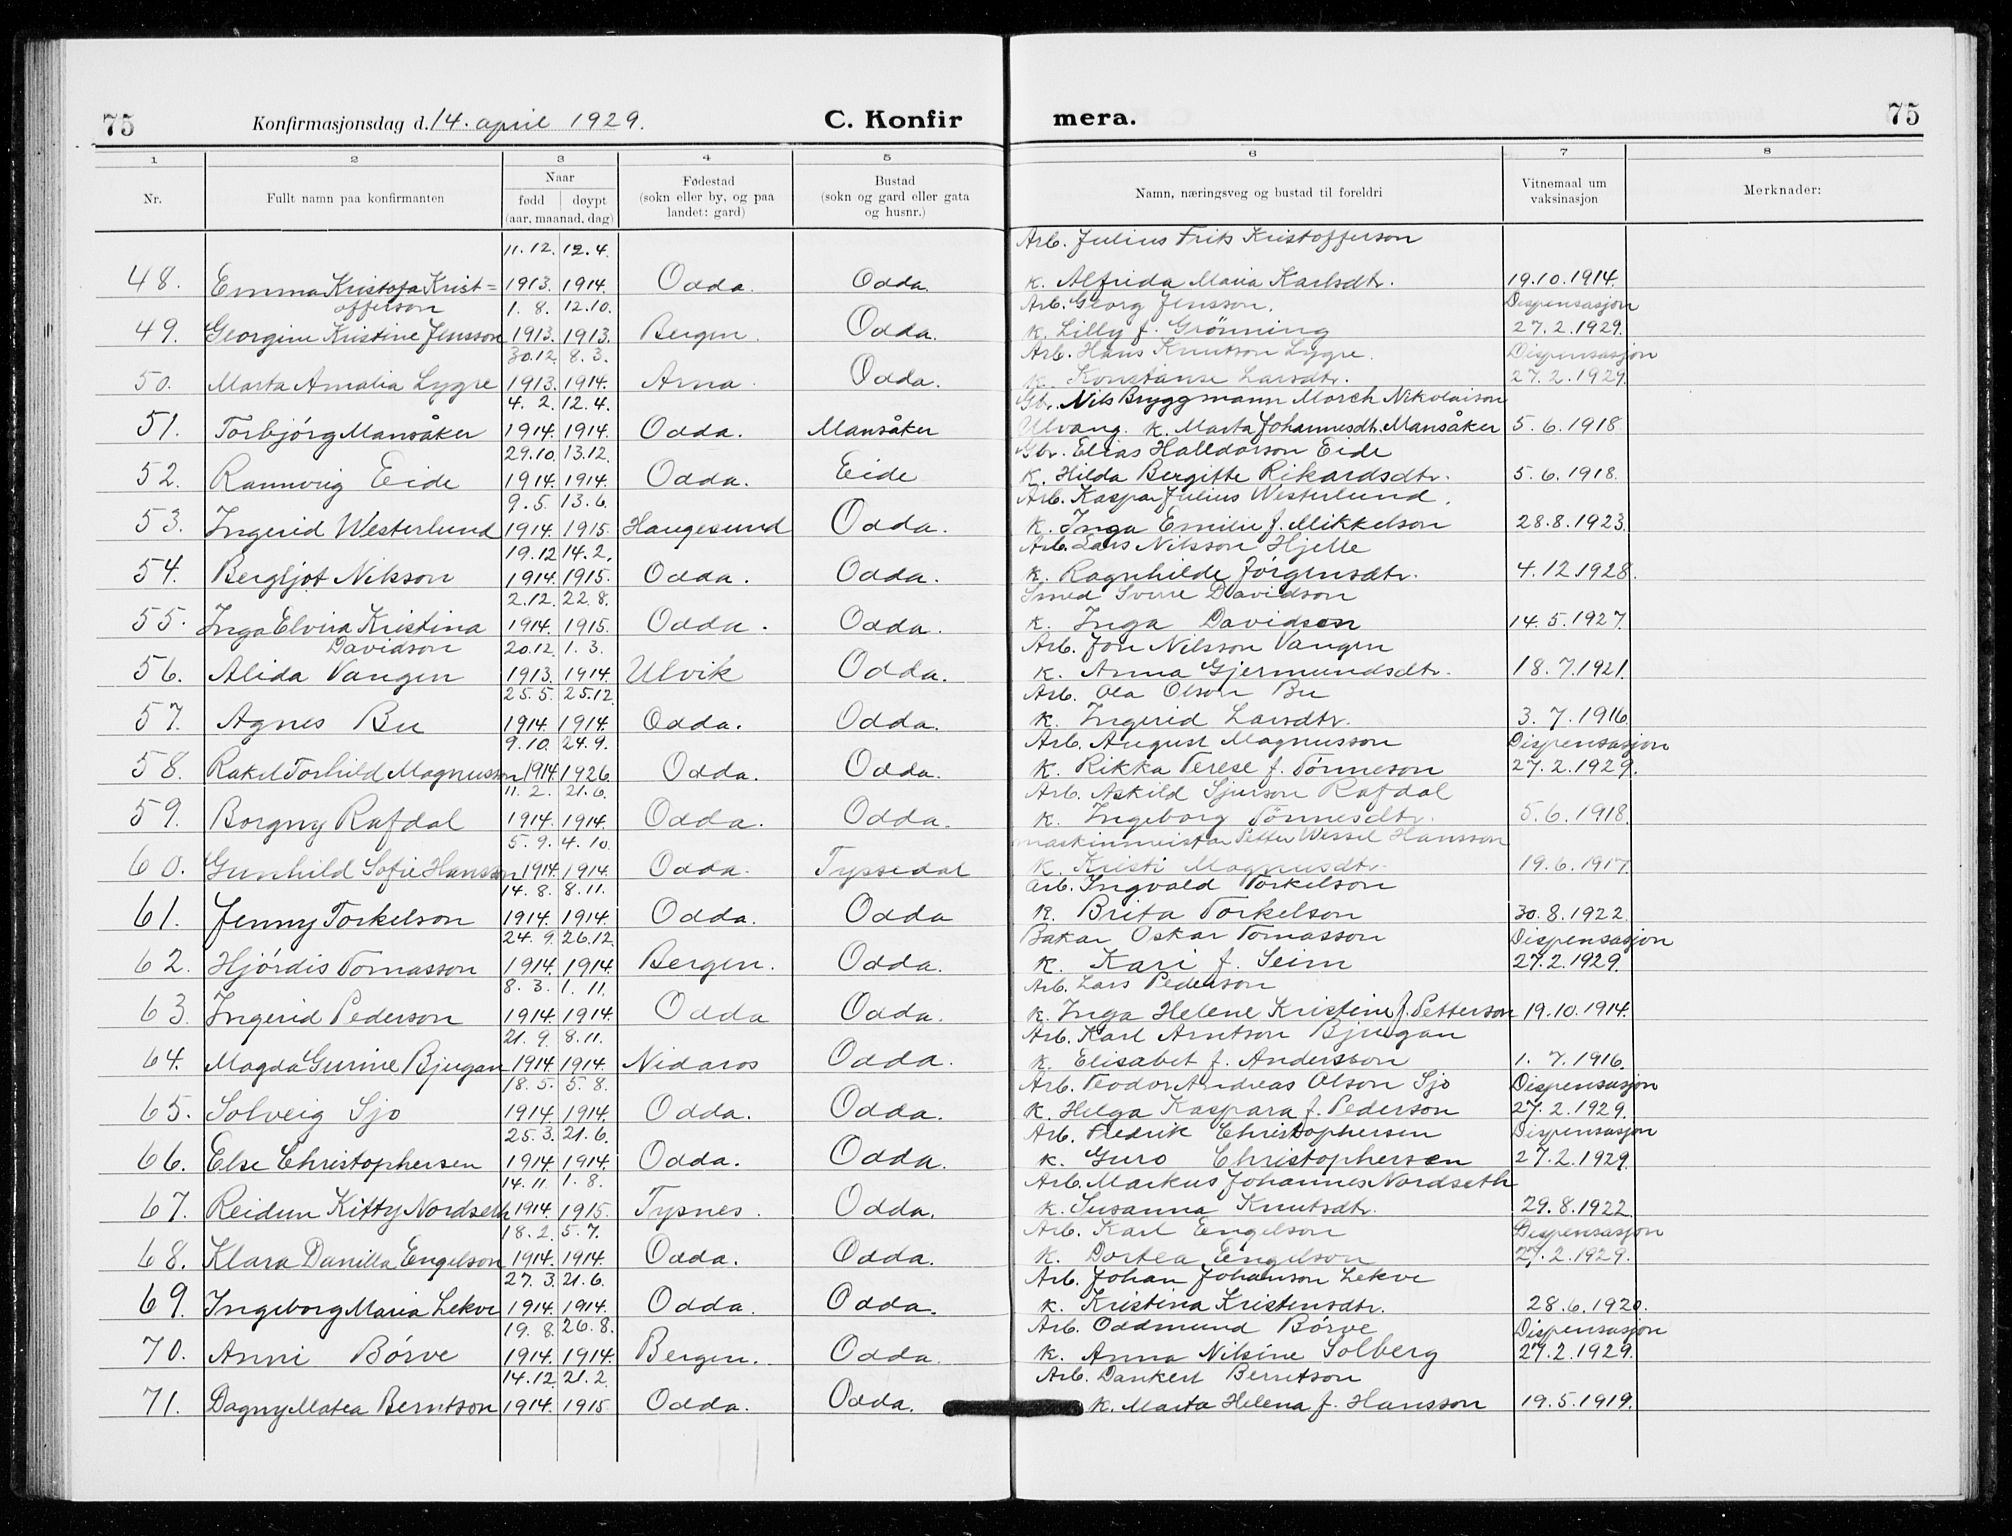 75 Konfirmasjonsdag d. 14. april 1929. C. Konfir mera. 75
1 2 3 4 5 6 7 8
Nr. Fullt namn paa konfirmanten Naar fødd døypt (aar, maanad, dag) Fødestad (sokn eller by, og paa landet: gard) Bustad (sokn og gard eller gata og husnr.) Namn, næringsveg og bustad til foreldri Vitnemaal um vaksinasjon Merknader:
11. 12. 12. 4. Arb. Julius Frits Kristofferson
48. Emma Kristofa Krist= 1913. 1914. Odda. Odda. K. Alfrida Maria Karlsdtr. 19.10.1914.
offerson 1. 8. 12.10. Arb. Georg Jensson. Dispensasjon
49. Georgine Kristine Jensson 1913. 1913. Bergen. Odda. K. Lilly f. Grönning 27.2.1929.
30.12. 8. 3. Arb. Hans Knutson Lygre. Dispensasjon
50. Marta Amalia Lygre 1913. 1914. Arna. Odda. K. Konstanse Larsdtr. 27.2.1929.
4. 2. 12. 4. Gbr. Nils Bryggmann March Nikolaison
51. Torbjórg Mansåker 1914. 1914. Odda. Mansåker Ulvang. K. Marta Johannesdt. Mansåker 5.6.1918
29.10. 13.12. Gbr. Elias Halldorson Eide
52. Rannvig Eide 1914. 1914. Odda. Eide K. Hilda Bergitte Rikardsdtr. 5.6.1918.
9. 5. 13. 6. Arb. Kaspar Julius Westerlund.
53. Ingerid Westerlund 1914. 1915. Haugesund Odda. K. Inga Emilie f. Mikkelson 28.8.1923.
19.12 14.2. Arb. Lars Nilsson Hjelle
54. Bergljot Nilsson 1914. 1915. Odda. Odda. K. Ragnhilde Jörgensdtr. 4.12.1928.
2.12. 22.8. Smed Sverre Davidson
55. Inga Elvira Kristina 1914. 1915. Odda. Odda. K. Inga Davidson 14.5.1927.
Davidson 20.12. 1.3. Arb. Jon Nilsson Vangen
56. Alida Vangen 1913. 1914. Ulvik Odda. K. Anna Gjermundsdtr. 18.7.1921.
25.5. 25.12 Arb. Ola Olson Bu
57. Agnes Bu 1914. 1914. Odda. Odda. K. Ingerid Larsdtr. 3.7.1916.
9.10. 24.9. Arb. August Magnusson Dispensasjon
58. Rakel Torhild Magnusson 1914. 1926 Odda. Odda. K. Rikka Terese f. Tönneson 27.2.1929.
11. 2. 21.6. Arb. Askild Sjurson Rafdal
59. Borgny Rafdal 1914. 1914. Odda. Odda. K. Ingeborg Tönnesdtr. 5.6.1918.
5. 9. 4. 10. maskinmeistar Petter Wessel Hansson
60. Gunhild Sofie Hansson 1914. 1914. Odda. Tyssedal K. Kristi Magnusdtr. 19.6.1917.
14. 8. 8. 11. arb. Ingvald Torkelson
61. Jenny Torkelson 1914. 1914. Odda. Odda K. Brita Torkelson 30.8.1922.
24. 9. 26.12. Bakar Oskar Tomasson Dispensasjon
62. Hjórdis Tomasson 1914. 1914. Bergen. Odda. K. Kari f. Seim 27.2.1929.
8. 3. 1. 11. Arb. Lars Pederson
63. Ingerid Pederson 1914. 1914. Odda Odda. K. Inga Helene Kristine f. Petterson 19.10.1914.
21. 9. 8.11. Arb. Karl Arntson Bjugan
64. Magda Gurine Bjugan 1914. 1914. Nidaros Odda. K. Elisabet f. Andersson 1. 7.1916.
18. 5. 5. 8. Arb. Teodor Andreas Olson Sjo Dispensasjon
65. Solveig Sjo 1914. 1914. Odda. Odda. K. Helga Kaspara f. Pederson 27.2.1929.
25. 3. 21.6. Arb. Fredrik Christophersen Dispensasjon
66. Else Christophersen 1914. 1914. Odda. Odda. K. Guro Christophersen 27.2.1929.
14.11. 1. 8. Arb. Markus Johannes Nordseth
67. Reidun Kitty Nordseth 1914. 1915. Tysnes. Odda. K. Susanna Knutsdtr. 29.8.1922.
18. 2. 5. 7. Arb. Karl Engelson Dispensasjon
68. Klara Danilla Engelson 1914. 1914. Odda. Odda. K. Dortea Engelson 27.2.1929.
27. 3. 21.6. Arb. Johan Johanson Lekve
69. Ingeborg Maria Lekve 1914. 1914. Odda. Odda. K. Kristina Kristensdtr. 28.6.1920.
19. 8. 26.8. Arb. Oddmund Börve Dispensasjon
70. Anni Börve 1914. 1914. Bergen. Odda. K. Anna Nilsine Solberg 27.2.1929.
14.12. 21.2. Arb. Dankert Berntson
71. Dagny Matea Berntson 1914. 1915. Odda. Odda. K. Marta Helena f. Hansson 19.5.1919.